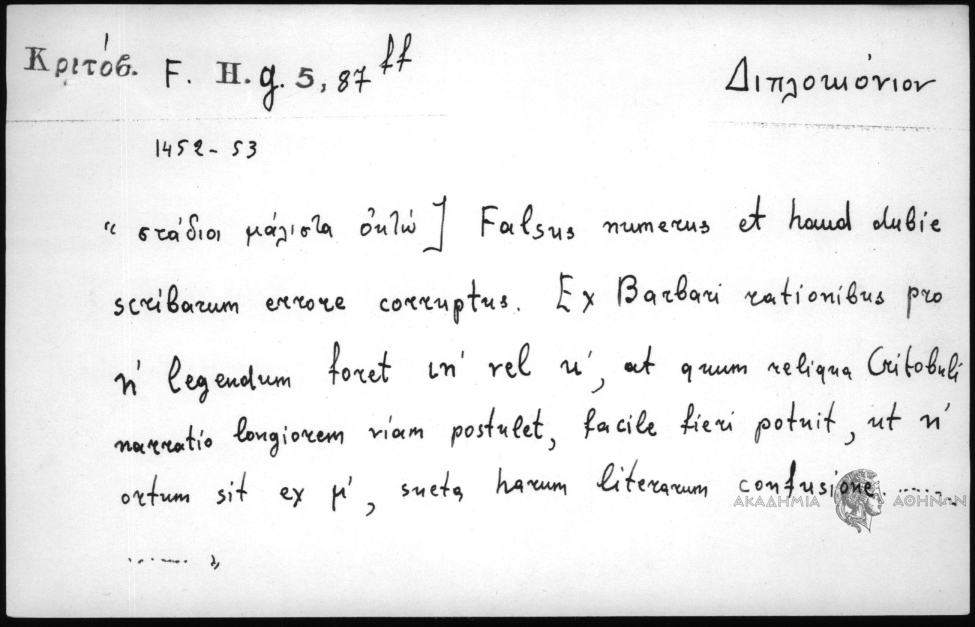 Κριτόβ. F. H. g. 5, 87 ff Διπλοκιόνιον
1452-53
“ στάδιοι μάλιστα ὀκτώ] Falsus numerus et haud dubie
scribarum errore corruptus. Ex Barbari rationibus pro
η' legendum foret ιη' vel κ', at quum reliqua Critobuli
narratio longiorem viam postulet, facile fieri potuit, ut η'
ortum sit ex μ', sueta harum literarum confusione.......
....... „
ΑΚΑΔΗΜΙΑ ΑΘΗΝΩΝ